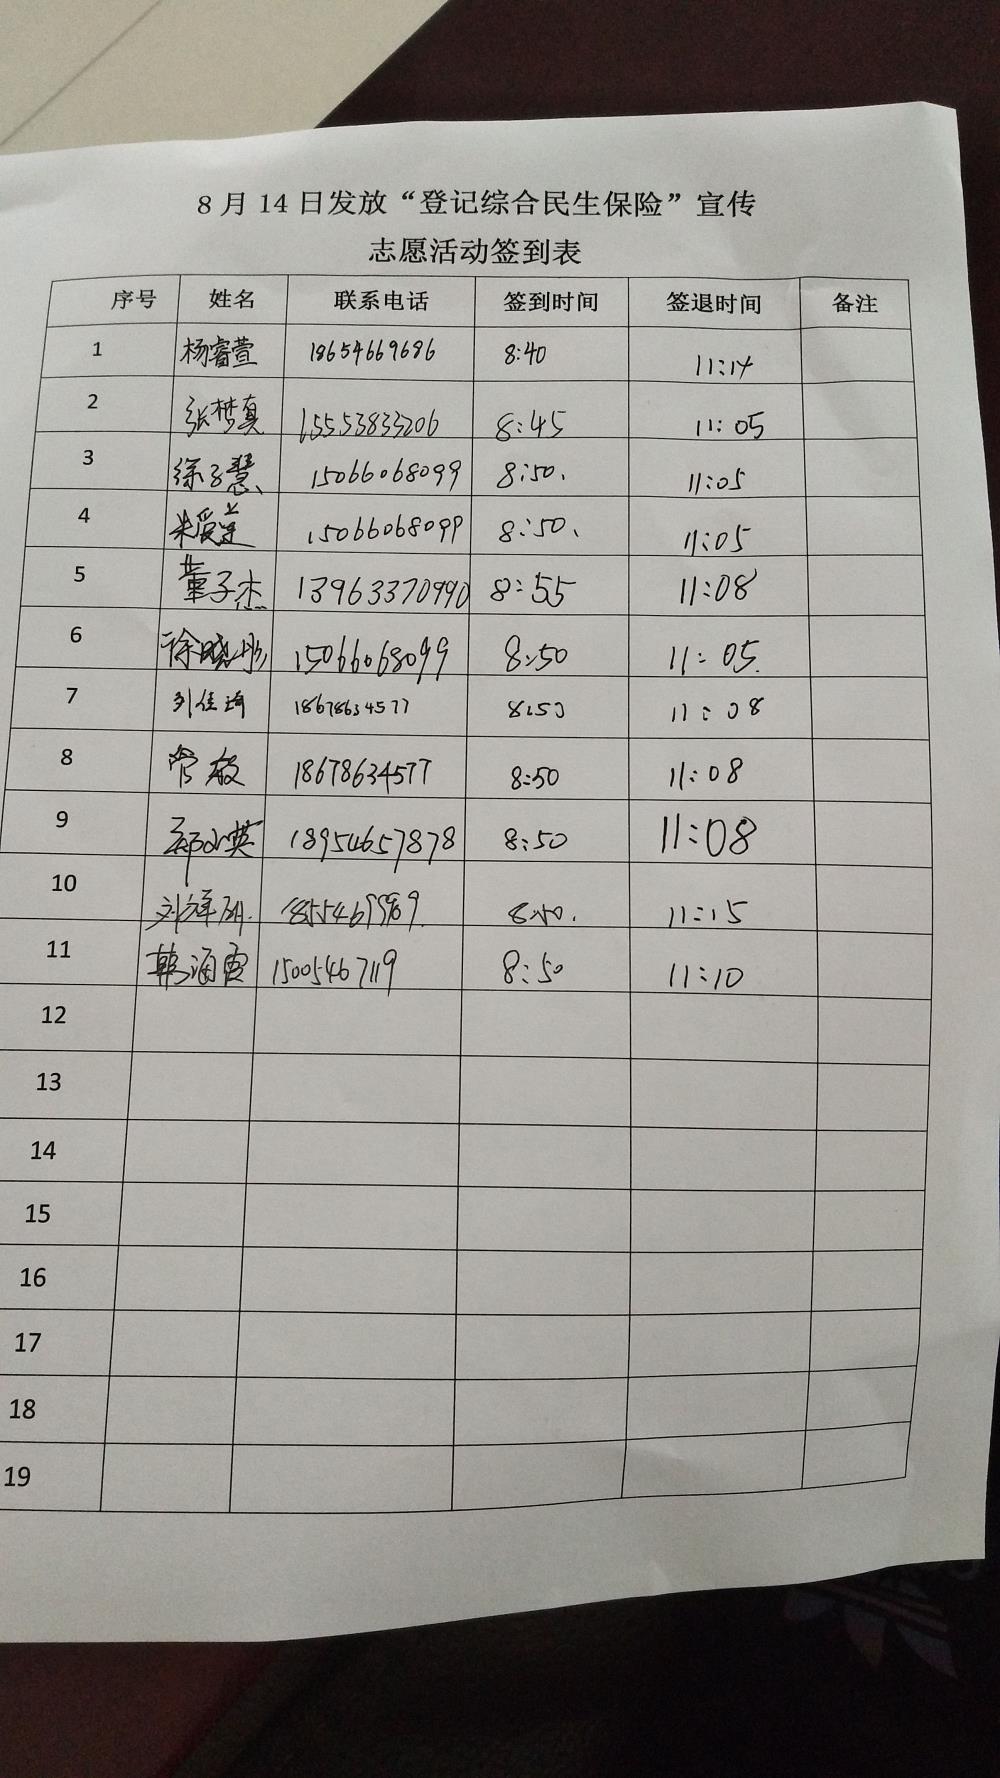 8月14日发放“登记综合民生保险”宣传
志愿活动签到表
序号 姓名 联系电话 签到时间 签退时间 备注
1 杨睿萱 18654669686 8:40 11:14
2 张梦真 15553833206 8:45 11:05
3 徐子慧 15066068099 8:50. 11:05
4 朱爱莲 15066068099 8:50. 11:05
5 董子杰 13963370990 8:55 11:08
6 徐晓彤 15066068099 8:50 11:05.
7 刘佳琦 18678634577 8:50 11:08
8 管敏 18678634577 8:50 11:08
9 郑小英 18954657878 8:50 11:08
10 8:50. 11:15
11 韩海霞 15005467119 8:50 11:10
12
13
14
15
16
17
18
19